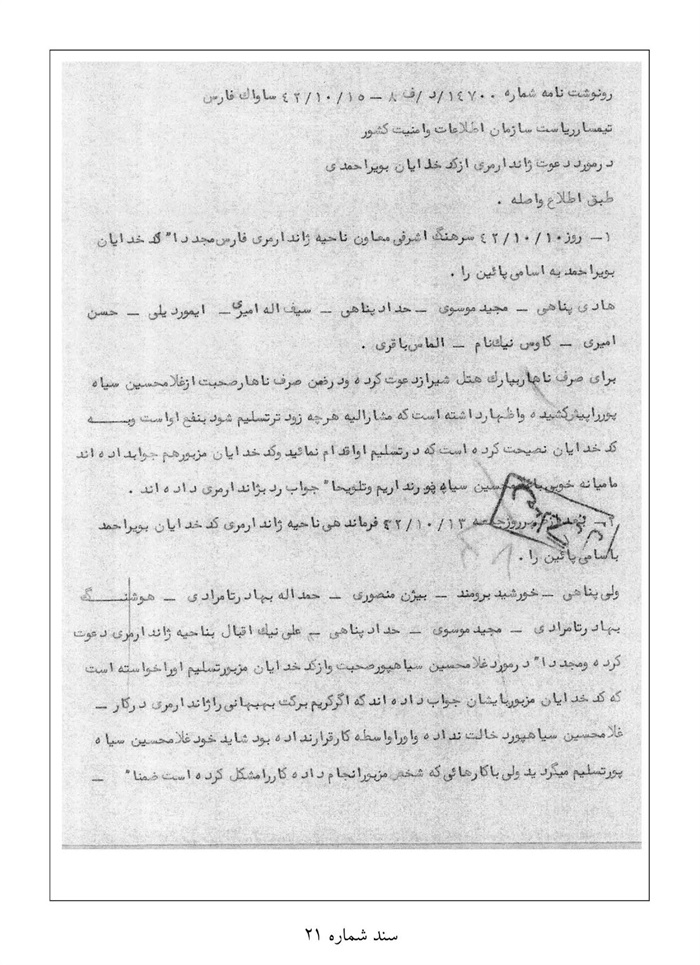 رونوشت نامه شماره ۱۴۷۰۰/د/ف ۸ – ۴۲/۱۰/۱۵ ساواك فارس
تیمسار ریاست سازمان اطلاعات وامنیت کشور
درمورد دعوت ژاندارمری ازکدخدایان بویراحمدی
طبق اطلاع واصله .
۱– روز ۴۲/۱۰/۱۰ سرهنگ اشرفی معاون ناحیه ژاندارمری فارس مجددا" کدخدایان
بویراحمد به اسامی پائین را .
هادی پناهی – مجید موسوی – حداد پناهی – سیف اله امیری – ایمور دیلی – حسن
امیری – کاوس نیك نام – الماس باقری .
برای صرف ناهار بپارك هتل شیراز دعوت کرده ودرضمن صرف ناهار صحبت ازغلامحسین سیاه
پور را پیش کشیده واظهار داشته است که مشارالیه هرچه زودتر تسلیم شود بنفع اواست وبه
کدخدایان نصیحت کرده است که درتسلیم او اقدام نمائید وکدخدایان مزبورهم جواب داده اند
مامیانه خوبی با غلامحسین سیاه پور نداریم وتلویحا" جواب رد بژاندارمری داده اند .
روز جمعه ۴۲/۱۰/۱۳ فرماندهی ناحیه ژاندارمری کدخدایان بویراحمد
باسامی پائین را .
ولی پناهی – خورشید برومند – بیژن منصوری – حمداله بهادر تامرادی – هوشنگ
بهادر تامرادی – مجید موسوی – حداد پناهی – علی نیك اقبال بناحیه ژاندارمری دعوت
کرده ومجددا" درمورد غلامحسین سیاهپور صحبت وازکدخدایان مزبور تسلیم اوراخواسته است
که کدخدایان مزبور بایشان جواب داده اند که اگر کریم برکت بهبهانی را ژاندارمری درکار –
غلامحسین سیاهپور دخالت نداده واورا واسطه کار قرار نداده بود شاید خود غلامحسین سیاه
پور تسلیم میگردید ولی باکارهائی که شخص مزبور انجام داده کاررا مشکل کرده است ضمنا" –
سند شماره ۲۱